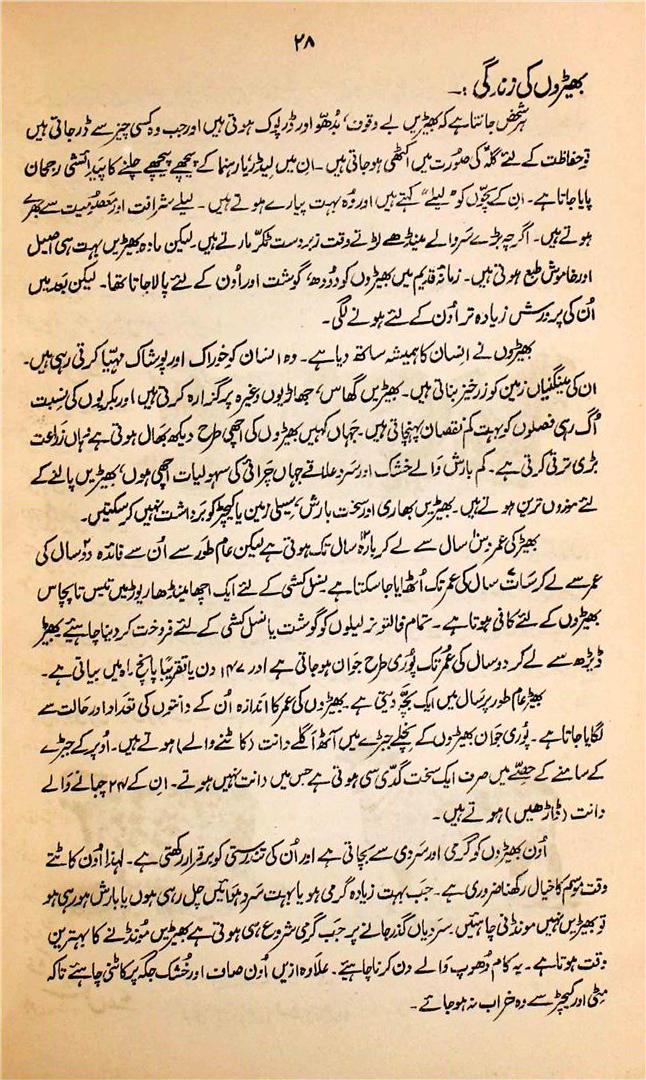 ۲۸
بھیڑوں کی زندگی :۔
ہر شخص جانتا ہے کہ بھیڑیں بے وقوف، بُدھّو اور ڈرپوک ہوتی ہیں اور جب وہ کسی چیز سے ڈر جاتی ہیں
تو حفاظت کے لئے گلّہ کی صورت میں اکٹھی ہو جاتی ہیں۔ ان میں لیڈر یا رہنما کے پیچھے پیچھے چلنے کا پیدائشی رجحان
پایا جاتا ہے۔ ان کے بچّوں کو ”لیلے“ کہتے ہیں اور وُہ بہت پیارے ہوتے ہیں۔ لیلے شرافت اور معصومیت سے بھرے
ہوتے ہیں۔ اگرچہ بڑے سر والے مینڈھے لڑتے وقت زبردست ٹکّر مارتے ہیں۔ لیکن مادہ بھیڑیں بہت ہی اصیل
اور خاموش طبع ہوتی ہیں۔ زمانۂ قدیم میں بھیڑوں کو دودھ، گوشت اور اُون کے لئے پالا جاتا تھا۔ لیکن بعد میں
اُن کی پرورش زیادہ تر اُون کے لئے ہونے لگی۔
بھیڑوں نے انسان کا ہمیشہ ساتھ دیا ہے۔ وہ انسان کو خوراک اور پوشاک مہیّا کرتی رہی ہیں۔
ان کی مینگنیاں زمین کو زرخیز بناتی ہیں۔ بھیڑیں گھاس، جھاڑیوں وغیرہ پر گزارہ کرتی ہیں اور بکریوں کی نسبت
اُگ رہی فصلوں کو بہت کم نقصان پہنچاتی ہیں۔ جہاں کہیں بھیڑوں کی اچھی طرح دیکھ بھال ہوتی ہے وہاں زراعت
بڑی ترقی کرتی ہے۔ کم بارش والے خشک اور سرد علاقے جہاں چرائی کی سہولیات اچھی ہوں، بھیڑیں پالنے کے
لئے موزوں ترین ہوتے ہیں۔ بھیڑیں بھاری اور سخت بارش، سیلی زمین یا کیچڑ کو برداشت نہیں کر سکتیں۔
بھیڑ کی عمر دس سال سے لے کر بارہ ۱۲ سال تک ہوتی ہے لیکن عام طور سے اُن سے فائدہ دو ۲ سال کی
عمر سے لے کر سات ۷ سال کی عمر تک اُٹھایا جا سکتا ہے۔ نسل کشی کے لئے ایک اچھا مینڈھا ریوڑ میں تیس تا پچاس
بھیڑوں کے لئے کافی ہوتا ہے۔ تمام فالتو نر لیلوں کو گوشت یا نسل کشی کے لئے فروخت کر دینا چاہیئے بھیڑ
ڈیڑھ سے لے کر دو سال کی عمر تک پُوری طرح جوان ہو جاتی ہے اور ۱۴۷ دن یا تقریباً پانچ ماہ میں بیاتی ہے۔
بھیڑ عام طور پر سال میں ایک بچّہ دیتی ہے۔ بھیڑوں کی عمر کا اندازہ اُن کے دانتوں کی تعداد اور حالت سے
لگایا جاتا ہے۔ پُوری جوان بھیڑوں کے نچلے جبڑے میں آٹھ اگلے دانت (کاٹنے والے) ہوتے ہیں۔ اُوپر کے جبڑے
کے سامنے کے حصّے میں صرف ایک سخت گدّی سی ہوتی ہے جس میں دانت نہیں ہوتے۔ ان کے ۲۴ چبانے والے
دانت (ڈاڑھیں) ہوتے ہیں۔
اُون بھیڑوں کو گرمی اور سردی سے بچاتی ہے اور اُن کی تندرستی کو برقرار رکھتی ہے۔ لہٰذا اُون کاٹتے
وقت موسم کا خیال رکھنا ضروری ہے۔ جب بہت زیادہ گرمی ہو یا بہت سرد ہوائیں چل رہی ہوں یا بارش ہو رہی ہو
تو بھیڑیں نہیں مونڈنی چاہئیں۔ سردیاں گذر جانے پر جب گرمی شروع ہی ہوتی ہے بھیڑیں مُونڈنے کا بہترین
وقت ہوتا ہے۔ یہ کام دُھوپ والے دن کرنا چاہیئے۔ علاوہ ازیں اُون صاف اور خُشک جگہ پر کاٹنی چاہئے تاکہ
مٹی اور کیچڑ سے وہ خراب نہ ہو جائے۔